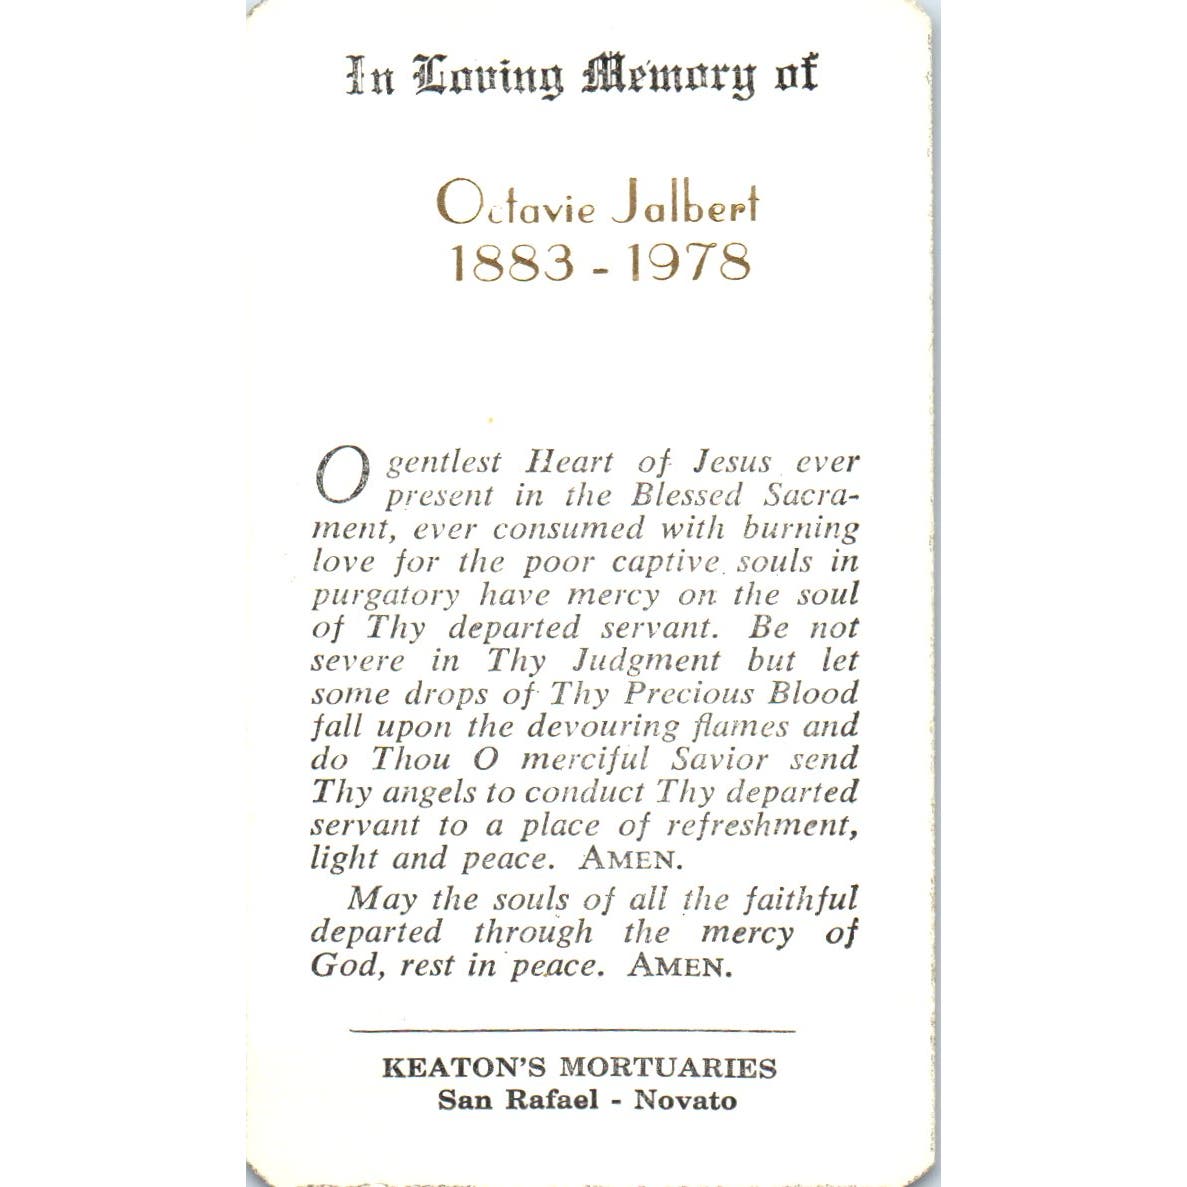 In Loving Memory of
Octavie Jalbert
1883 - 1978
O gentlest Heart of Jesus ever
present in the Blessed Sacra-
ment, ever consumed with burning
love for the poor captive souls in
purgatory have mercy on the soul
of Thy departed servant. Be not
severe in Thy Judgment but let
some drops of Thy Precious Blood
fall upon the devouring flames and
do Thou O merciful Savior send
Thy angels to conduct Thy departed
servant to a place of refreshment,
light and peace. AMEN.
May the souls of all the faithful
departed through the mercy of
God, rest in peace. AMEN.
KEATON'S MORTUARIES
San Rafael - Novato